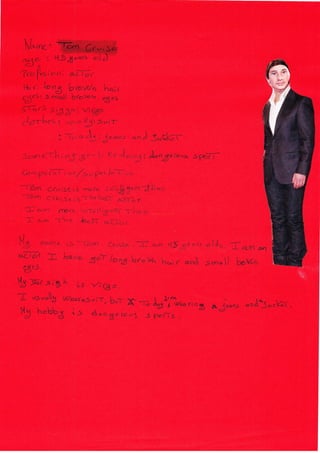 Name: Tom Cruise
age: 45 years old
Profesion: actor
Hair long brown hair
eyes: small brown eyes
star sign: virgo
clothes: usualy: suit
: Today: jeans and Jacket
Something I like doing: dangerous sport
Comparative/superlative
Tom cruise is more intelligent than
Tom cruise is the best actor
I am more intelligent than
I am the best actor
My name is Tom Cruise. I am 45 years old. I am an
actor I have got long brown hair and small
eyes.
My star sign is virgo
I usualy wear suit, but X Today I'm wearing a jeans and a Jacket.
My hobby is dangerous sports.